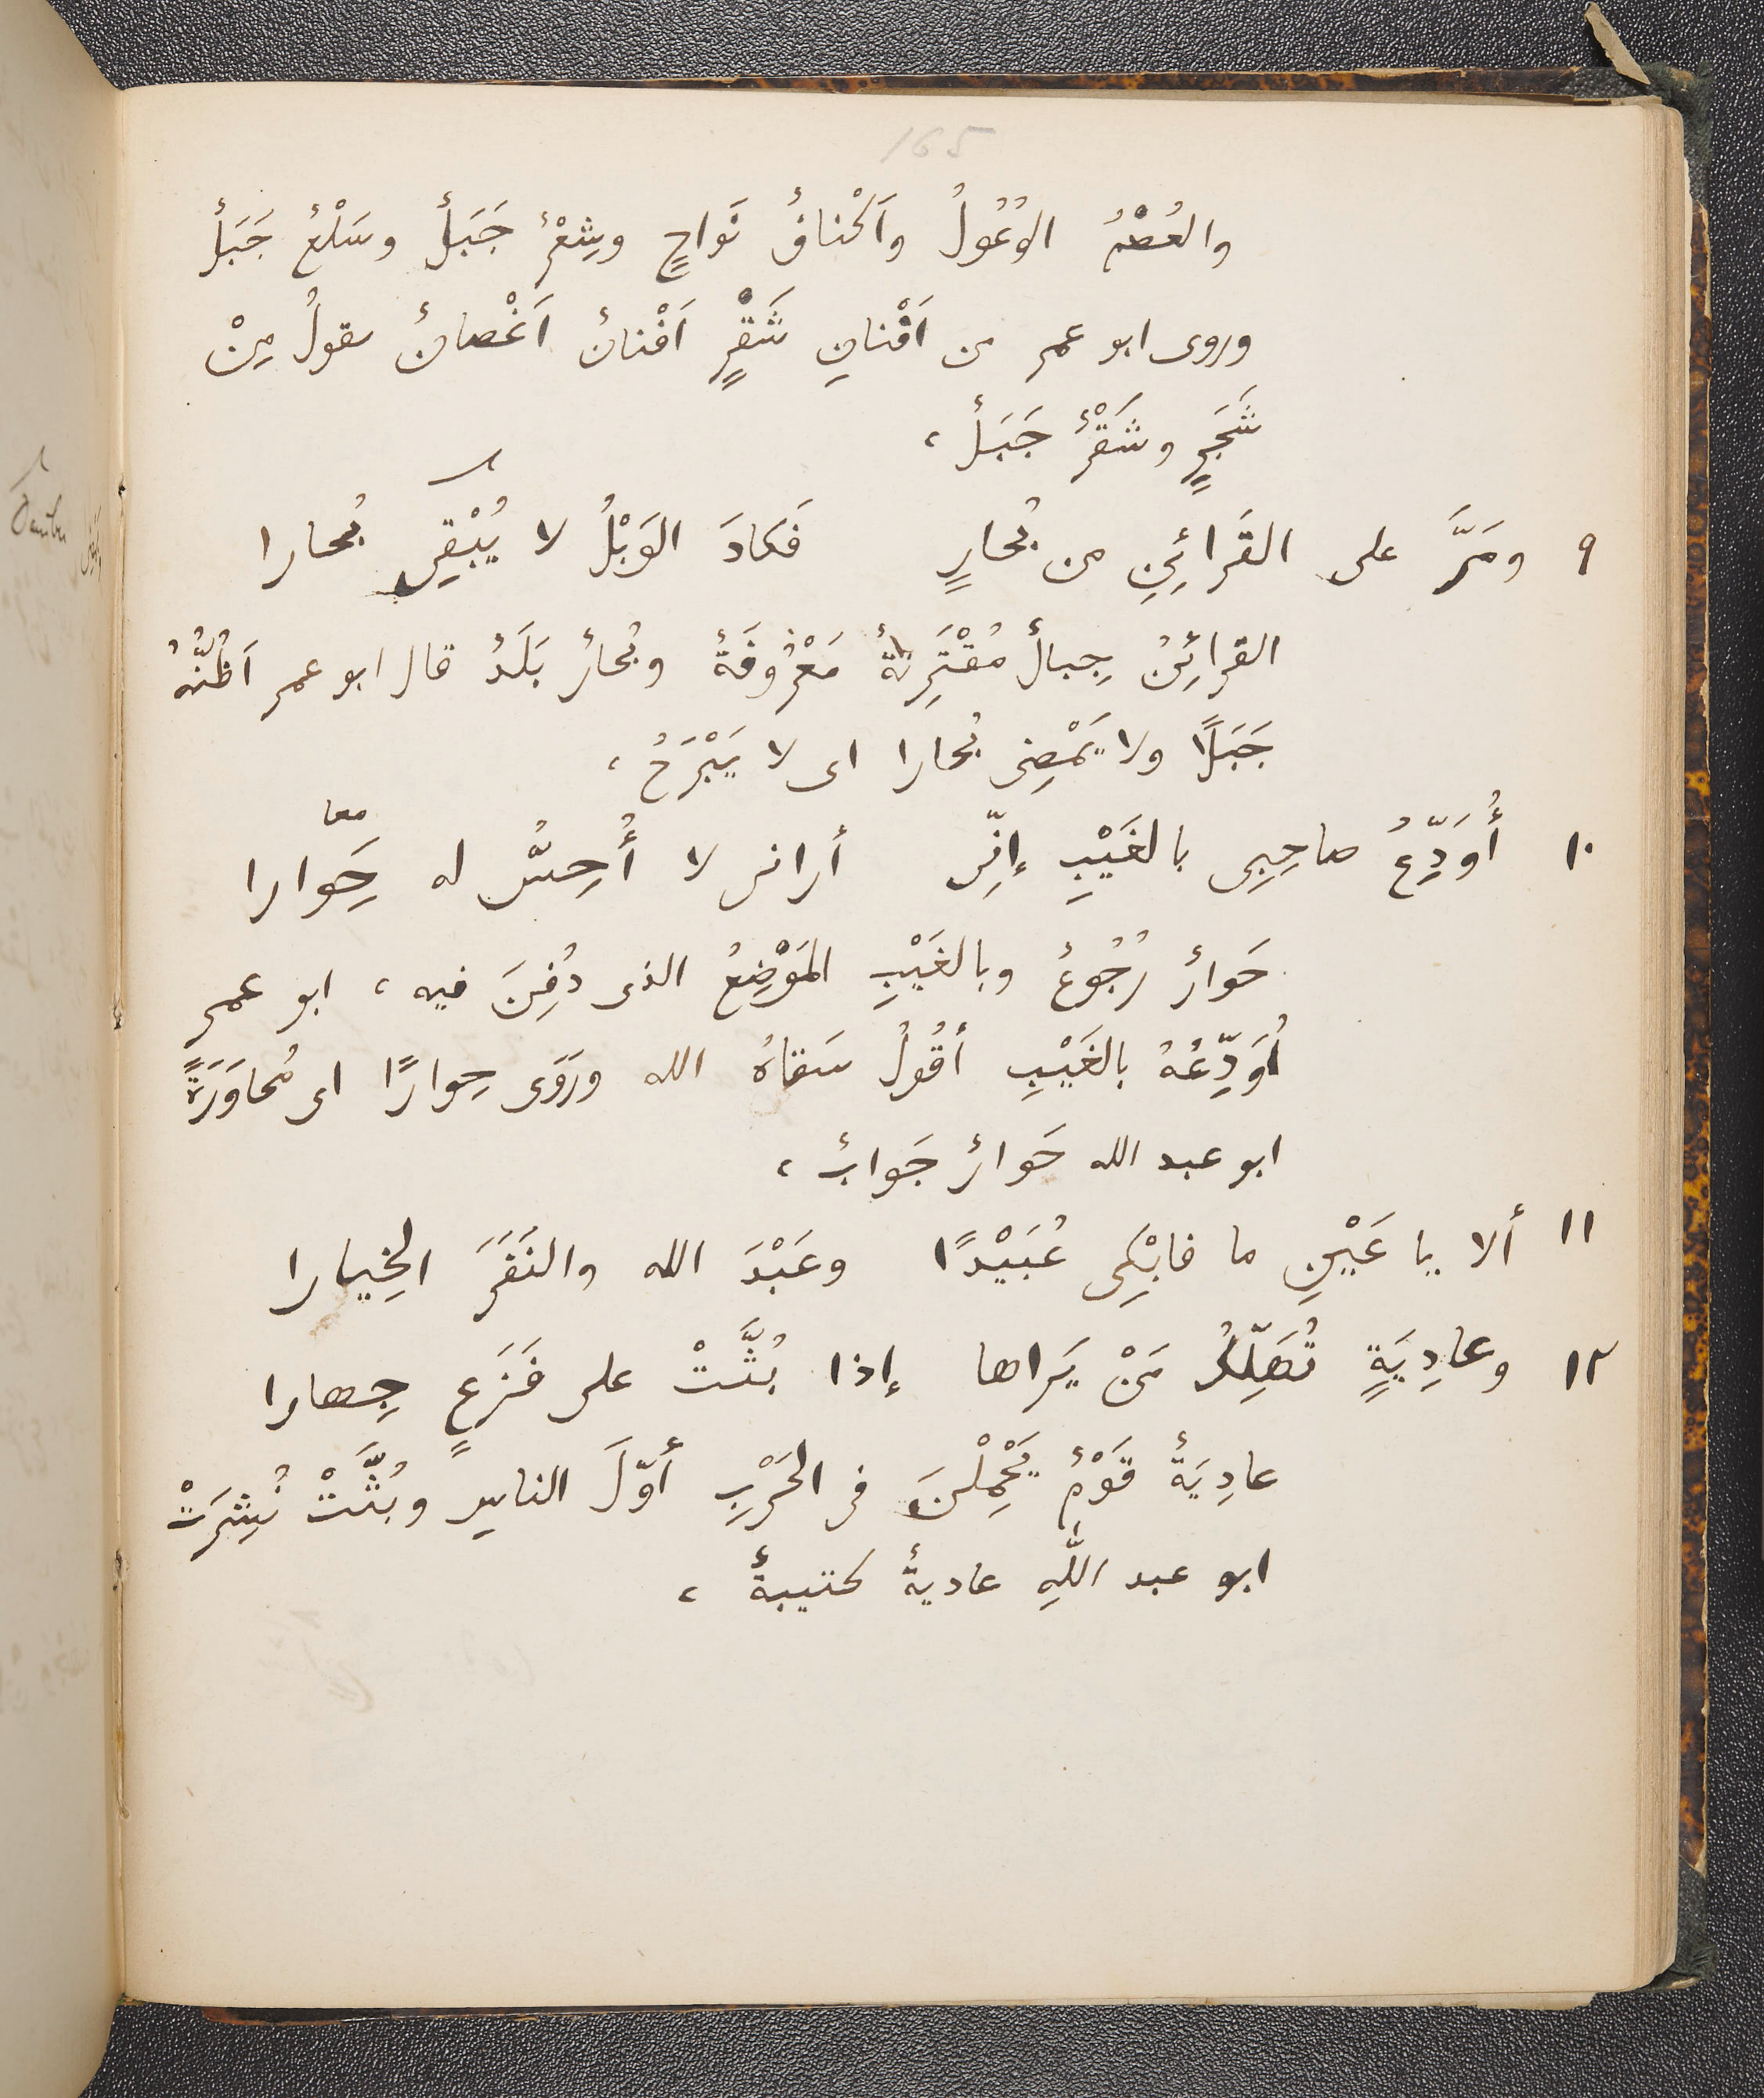 165
والعُصْمُ الوُعُولُ واَكْنافٌ نَواحٍ وشِعْرٌ جَبَلٌ وسَلْعٌ جَبَلٌ
وروى ابو عمرٍ من اَفْنانِ شَقْرٍ اَفْنانٌ اَغْصانٌ يقولُ مِنْ
شَجَرٍ وشَقْرٌ جَبَلٌ ،
٩ ومَرَّ على القَرائِنِ من بُحارٍ فَكادَ الوَبْلُ لا يُبْقِى بُحارا
القرائِنُ جِبالٌ مُقْتَرِنةٌ مَعْرُوفَةٌ وبُحارٌ بَلَدٌ قال ابو عمر اَظُنُّهُ
جَبَلًا ولا يَمْضِى بُحارا اى لا يَبْرَحُ ،
معا
١٠ أُوَدِّعُ صاحِبِى بالغَيْبِ إنِّى أرانى لا أُحِسُّ له حَِوارا
حَوارٌ رُجُوعٌ وبالغَيْبِ المَوْضِعُ الذى دُفِنَ فيه ، ابو عمرٍ
أُوَدِّعُهُ بالغَيْبِ أقُولُ سَقاهُ الله ورَوَى حِوارًا اى مُحاوَرَةً
ابو عبد الله حَوارٌ جَوابٌ ،
١١ ألا يا عَيْنِ ما فابْكِى عُبَيْدًا وعَبْدَ الله والنَفَرَ الخِيارا
١٢ وعادِيَةٍ تُهَلِّكُ مَنْ يَراها إذا بُثَّتْ على فَزَعٍ جِهارا
عادِيَةٌ قَوْمٌ يَحْمِلْنَ فى الحَرْبِ أوّلَ الناسِ وبُثَّتْ نُشِرَتْ
ابو عبد اللّٰهِ عاديةٌ كتيبةٌ ،